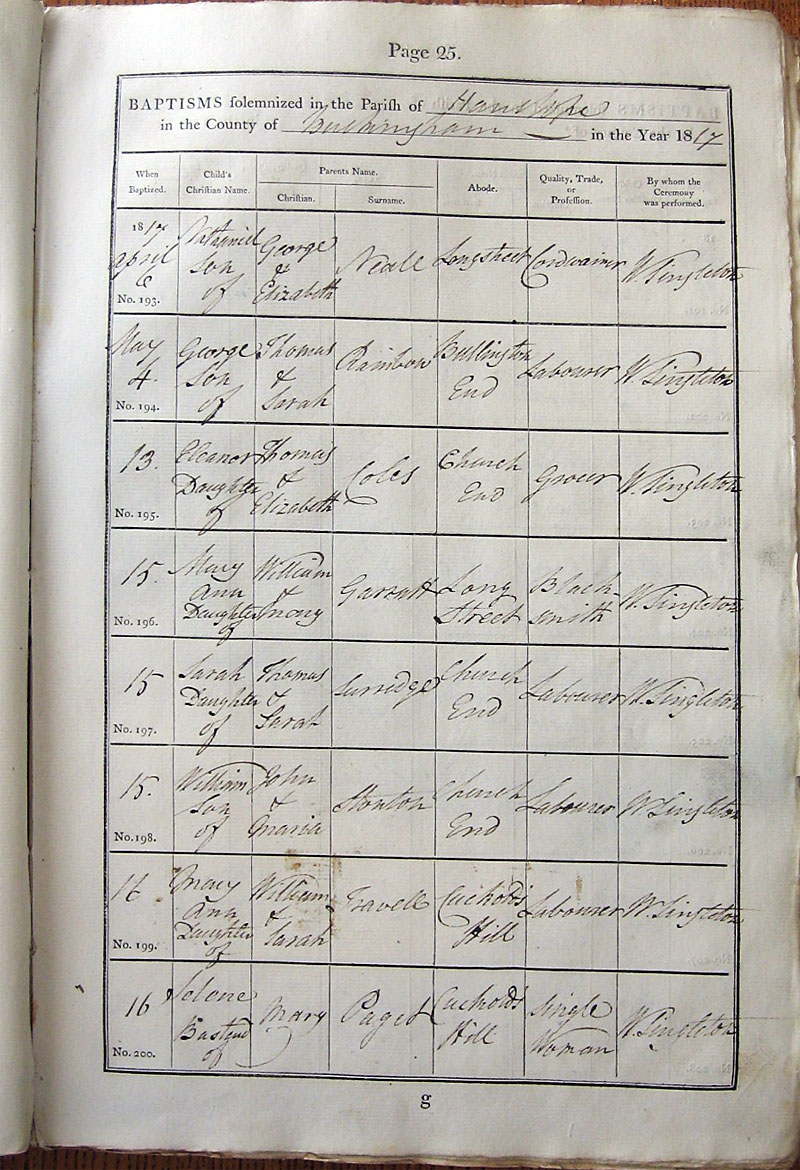 Page 25.
BAPTISMS solemnized in the Parish of Hanslope
in the County of Buckingham in the Year 1817
When Baptized.
Child's Christian Name.
Parents Name.
Christian.
Surname.
Abode.
Quality, Trade, or Profession.
By whom the Ceremony was performed.
1817 April 6 No. 193.
Nathaniel Son of
George & Elizabeth
Neale
Longstreet
Cordwainer
W. Singleton
May 4. No. 194.
George Son of
Thomas & Sarah
Rainbow
Bullington End
Labourer
W. Singleton
13. No. 195.
Eleanor Daughter of
Thomas & Elizabeth
Coles
Church End
Grocer
W. Singleton
15. No. 196.
Mary Ann Daughter of
William &
Garratt
Long Street
Black smith
W. Singleton
15 No. 197.
Sarah Daughter of
Thomas & Sarah
Surridge
Church End
Labourer
W. Singleton
15. No. 198.
William Son of
John & Maria
Stonton
Church End
Labourer
W. Singleton
16 No. 199.
Mary Ann Daughter of
William & Sarah
Travell
Cuckold's Hill
Labourer
W. Singleton
16 No. 200.
Selene Bastard of
Mary
Paget
Cuckold's Hill
Single Woman
W. Singleton
g